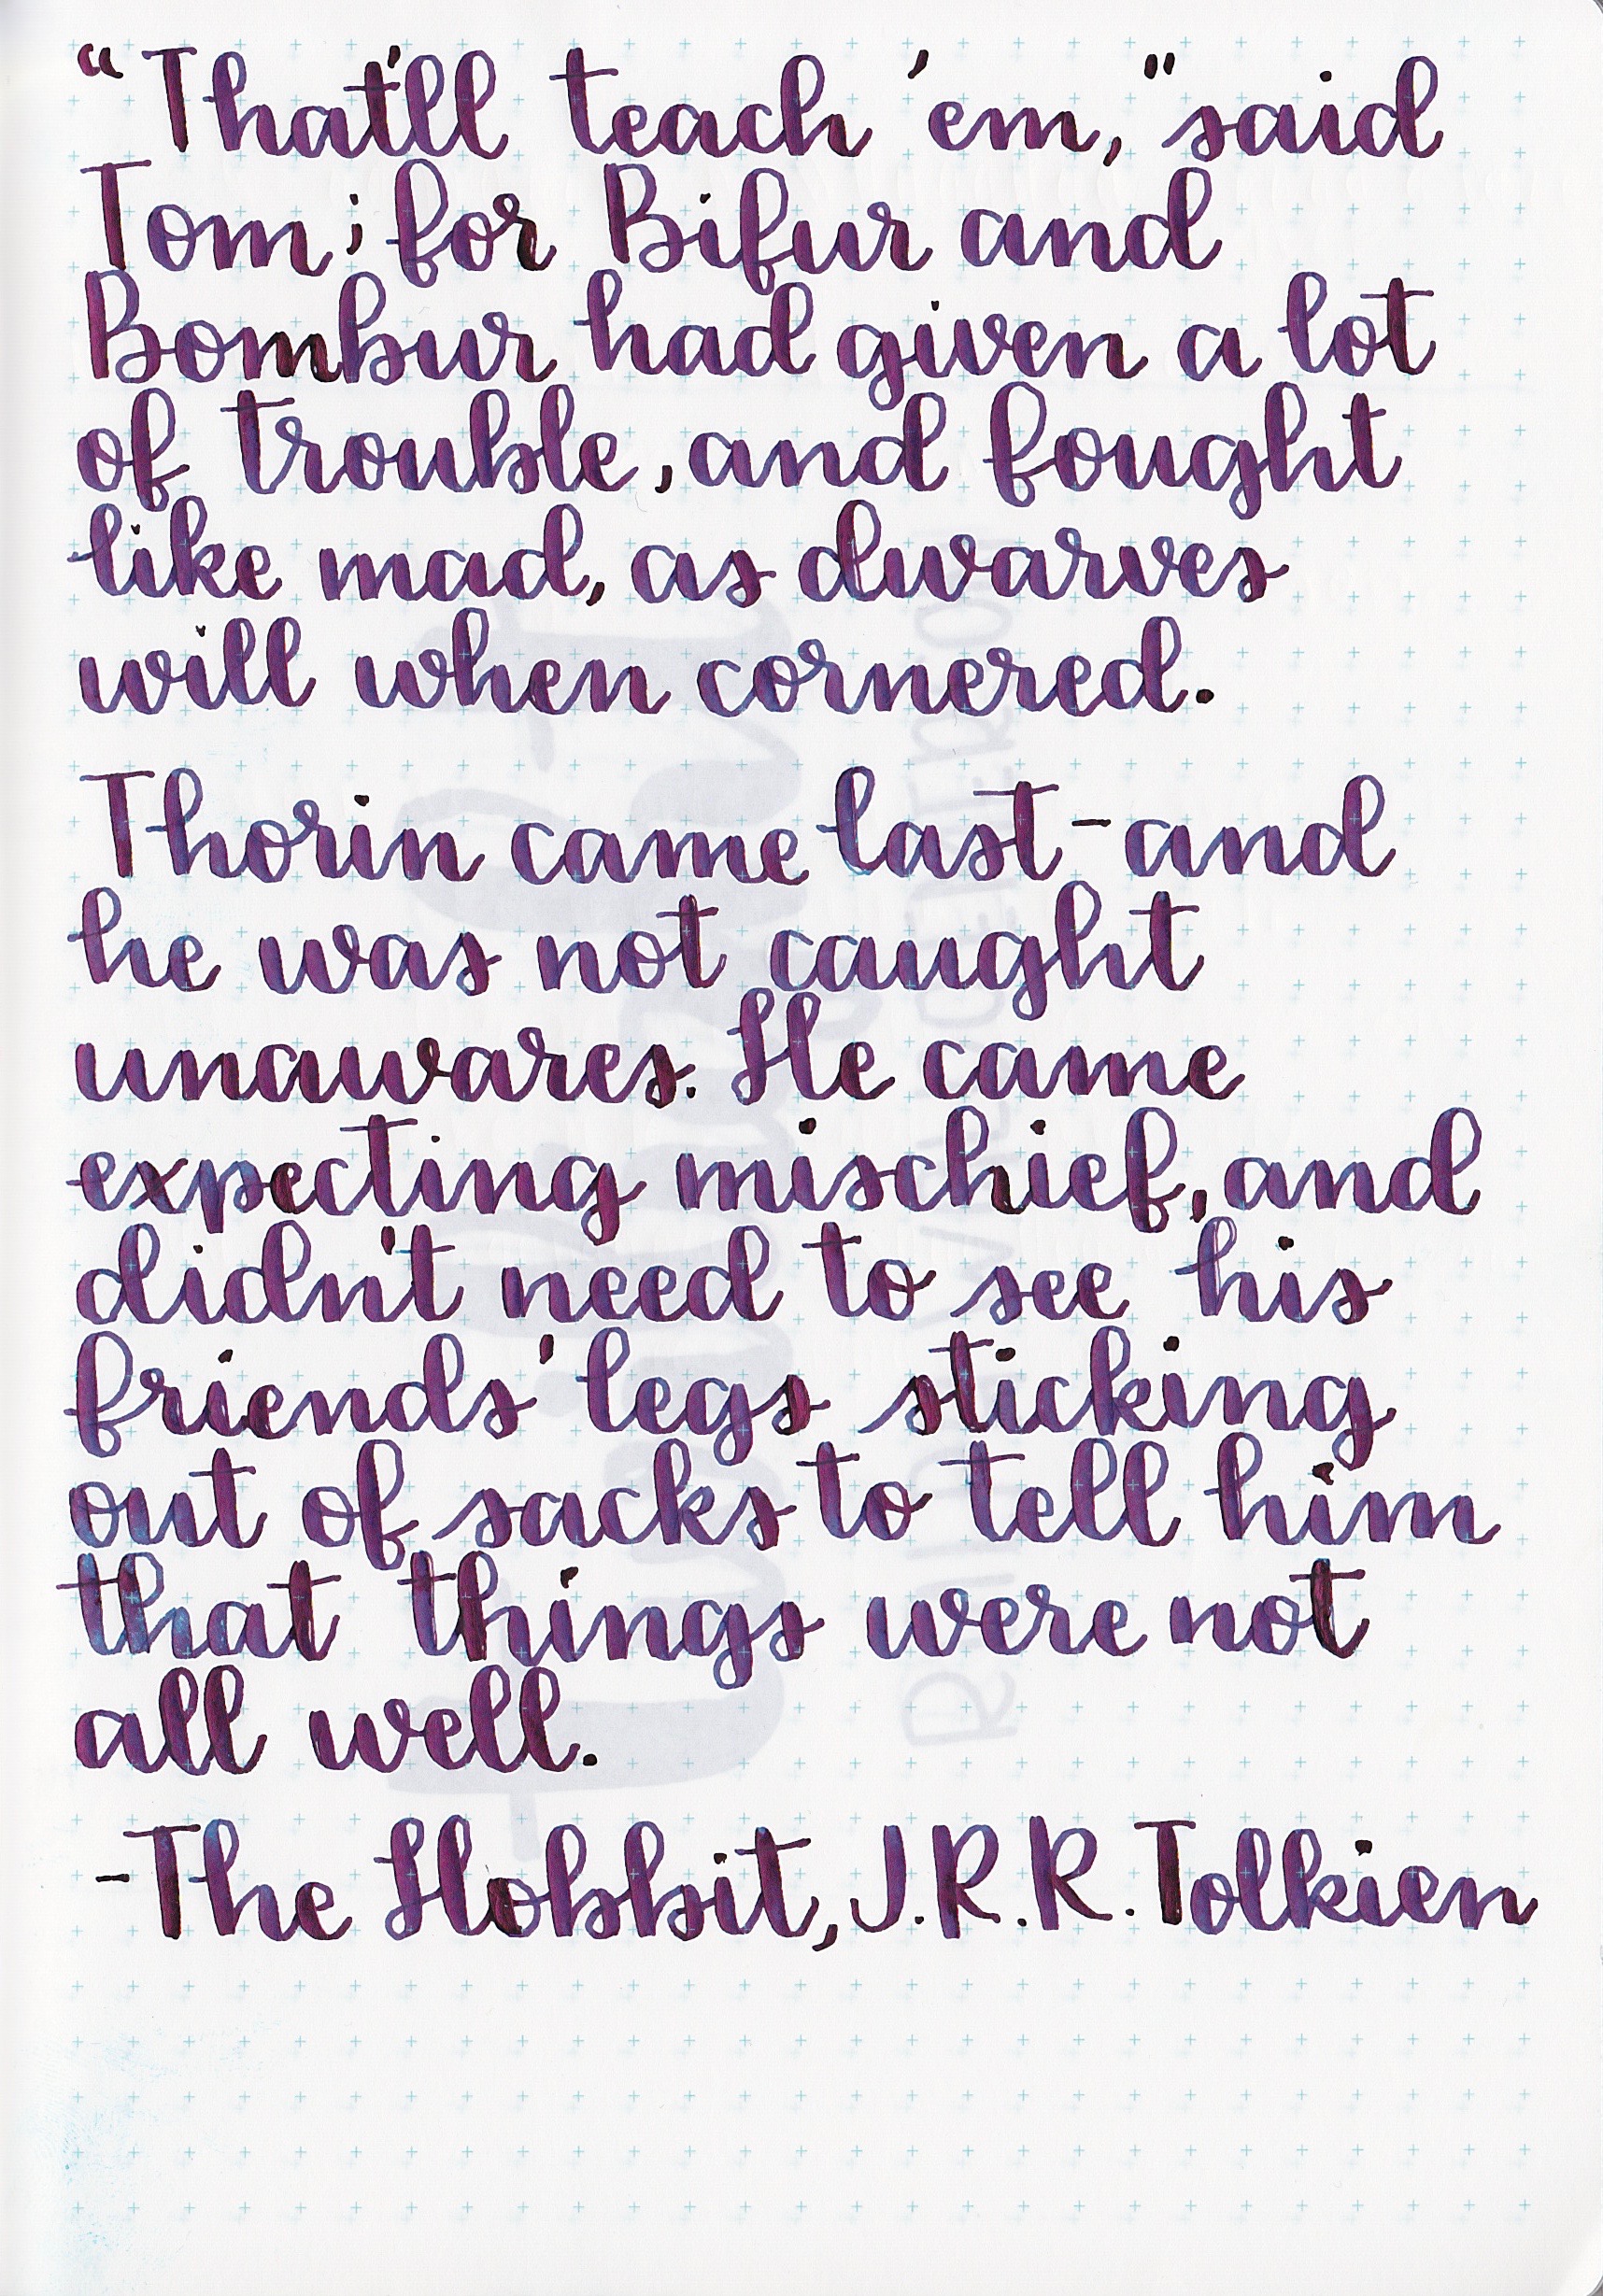 “That'll teach 'em,” said
Tom; for Bifur and
Bombur had given a lot
of trouble, and fought
like mad, as dwarves
will when cornered.
Thorin came last - and
he was not caught
unawares. He came
expecting mischief, and
didn't need to see his
friends' legs sticking
out of sacks to tell him
that things were not
all well.
-The Hobbit, J.R.R. Tolkien